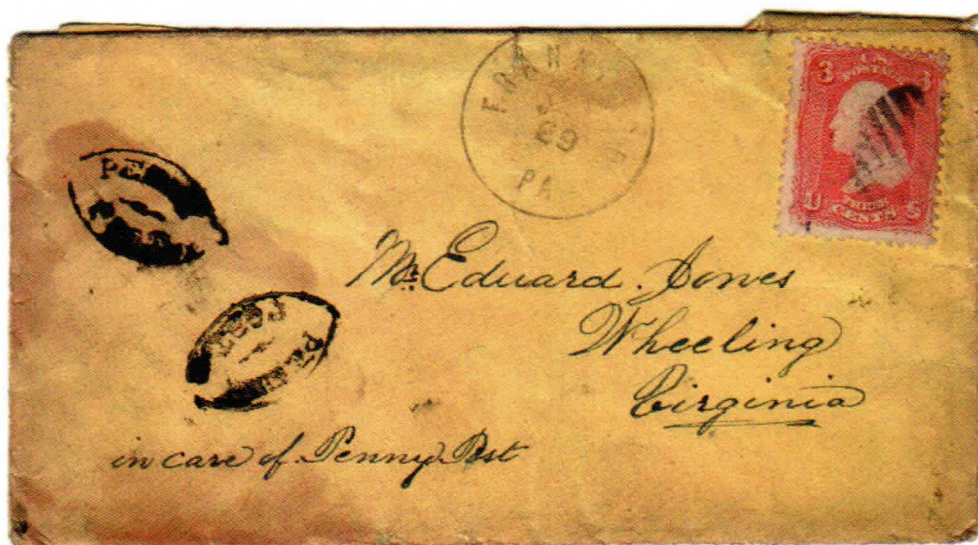 FRANK
29
PA
3 U.S. 3
POSTAGE
THREE
U CENTS S
PENNY
POST
Mr. Eduard. Jones
Wheeling
Virginia
PENNY
POST
in care of Penny Post